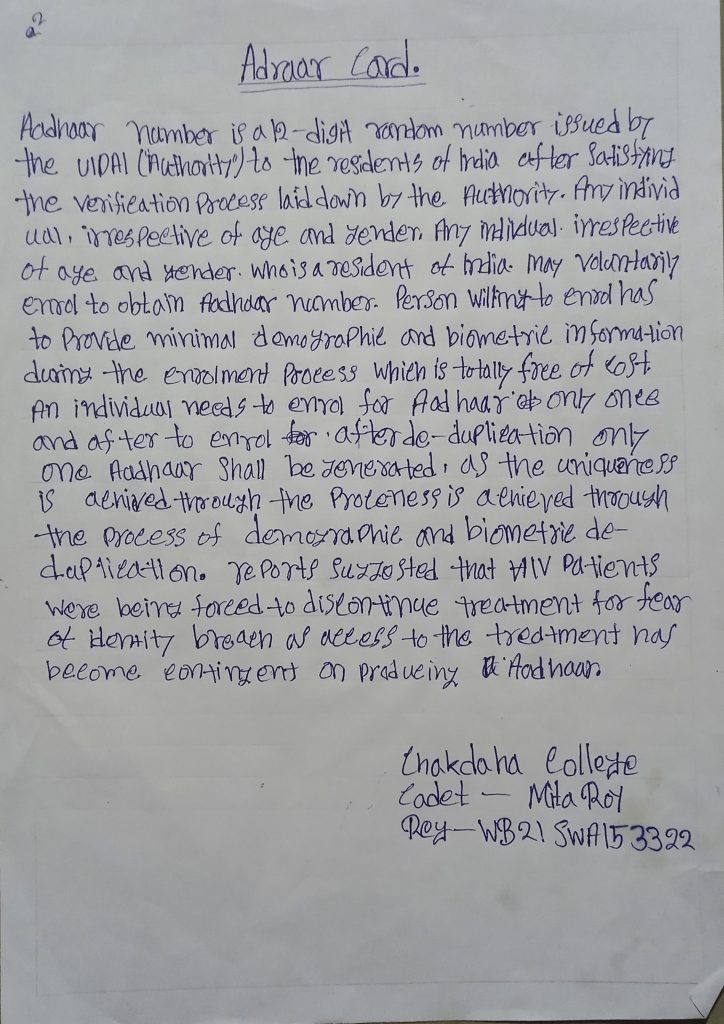 a²
Adraar Card.
Aadhaar number is a 12-digit random number issued by
the UIDAI ("Authority") to the residents of India after satisfying
the verification process laid down by the Authority. Any individ
ual, irrespective of age and gender. Any individual. irrespective
of age and gender. who is a resident of India. may voluntarily
enrol to obtain Aadhaar number. Person willing to enrol has
to provide minimal demographic and biometric information
during the enrolment process which is totally free of cost.
An individual needs to enrol for Aadhaar only once
and after to enrol . after de-duplication only
one Aadhaar shall be generated, as the uniqueness
is achived through the Proceness is achieved through
the process of demographic and biometric de-
duplication. reports suggosted that HIV Patients
were being forced to discontinue treatment for fear
of identity breach as access to the treatment has
become contingent on producing Aadhaar.
Chakdaha College
Cadet - Mita Roy
Reg - WB21SWA153322